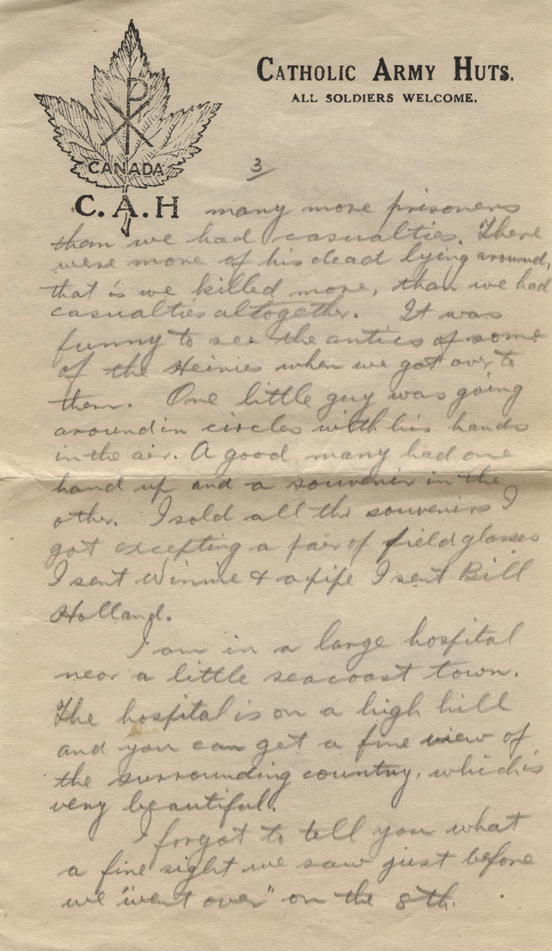 CATHOLIC ARMY HUTS.
ALL SOLDIERS WELCOME.
CANADA
C.A.H
3
many more prisoners
than we had casualties. There
were more of his dead lying around,
that is we killed more, than we had
casualties altogether. It was
funny to see the antics of some
of the Heinies when we got over to
them. One little guy was going
around in circles with his hands
in the air. A good many had one
hand up and a souvenir in the
other. I sold all the souvenirs I
got excepting a pair of field glasses
I sent Winnie & a pipe I sent Bill
Holland.
I am in a large hospital
near a little seacoast town.
The hospital is on a high hill
and you can get a fine view of
the surrounding country, which is
very beautiful.
I forgot to tell you what
a fine sight we saw just before
we "went over" on the 8th.